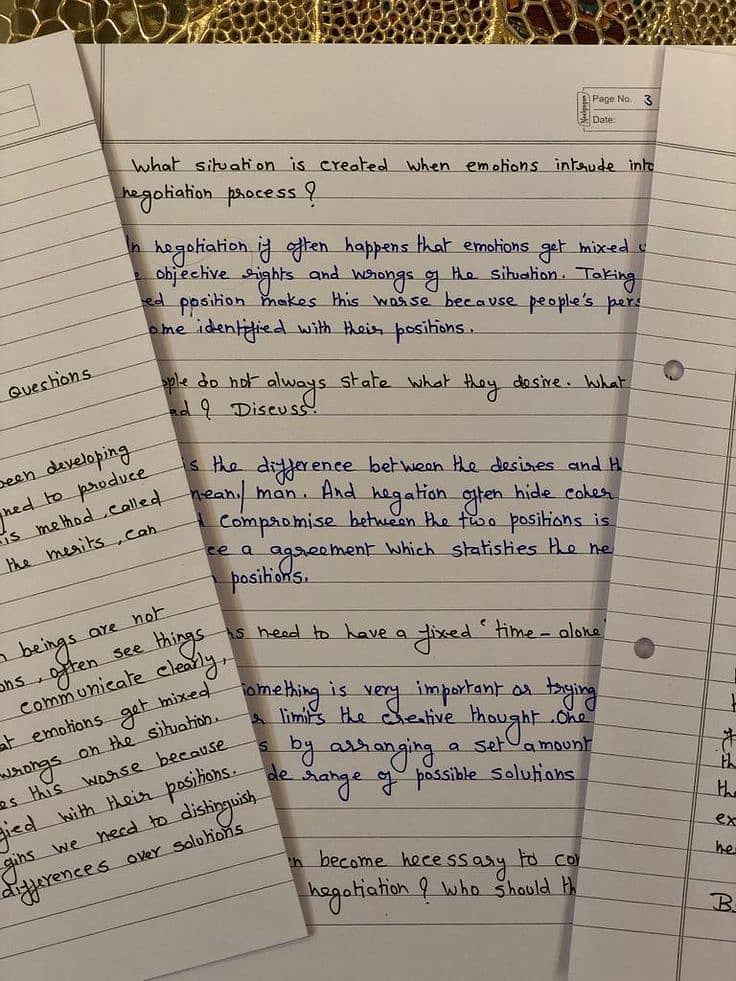 Page No. 3
Date:
What situation is created when emotions intrude into
negotiation process ?
In negotiation if often happens that emotions get mixed
objective rights and wrongs of the situation. Taking
position makes this worse because people's
identified with their positions.
do not always state what they desire. What
? Discuss.
is the difference between the desires and
man. And negation often hide
compromise between the two positions is
a agreement which statisties the
positions.
need to have a fixed "time - alone
something is very important as trying
limits the creative thought. One
by arranging a set amount
range of possible solutions
become necessary to
negotiation ? Who should
Questions
been developing
to produce
is method, called
the merits, can
beings are not
often see things
communicate clearly,
emotions get mixed
wrongs on the situation.
this worse because
with their positions.
we need to distinguish
differences over solutions
th
the
ex
he
B